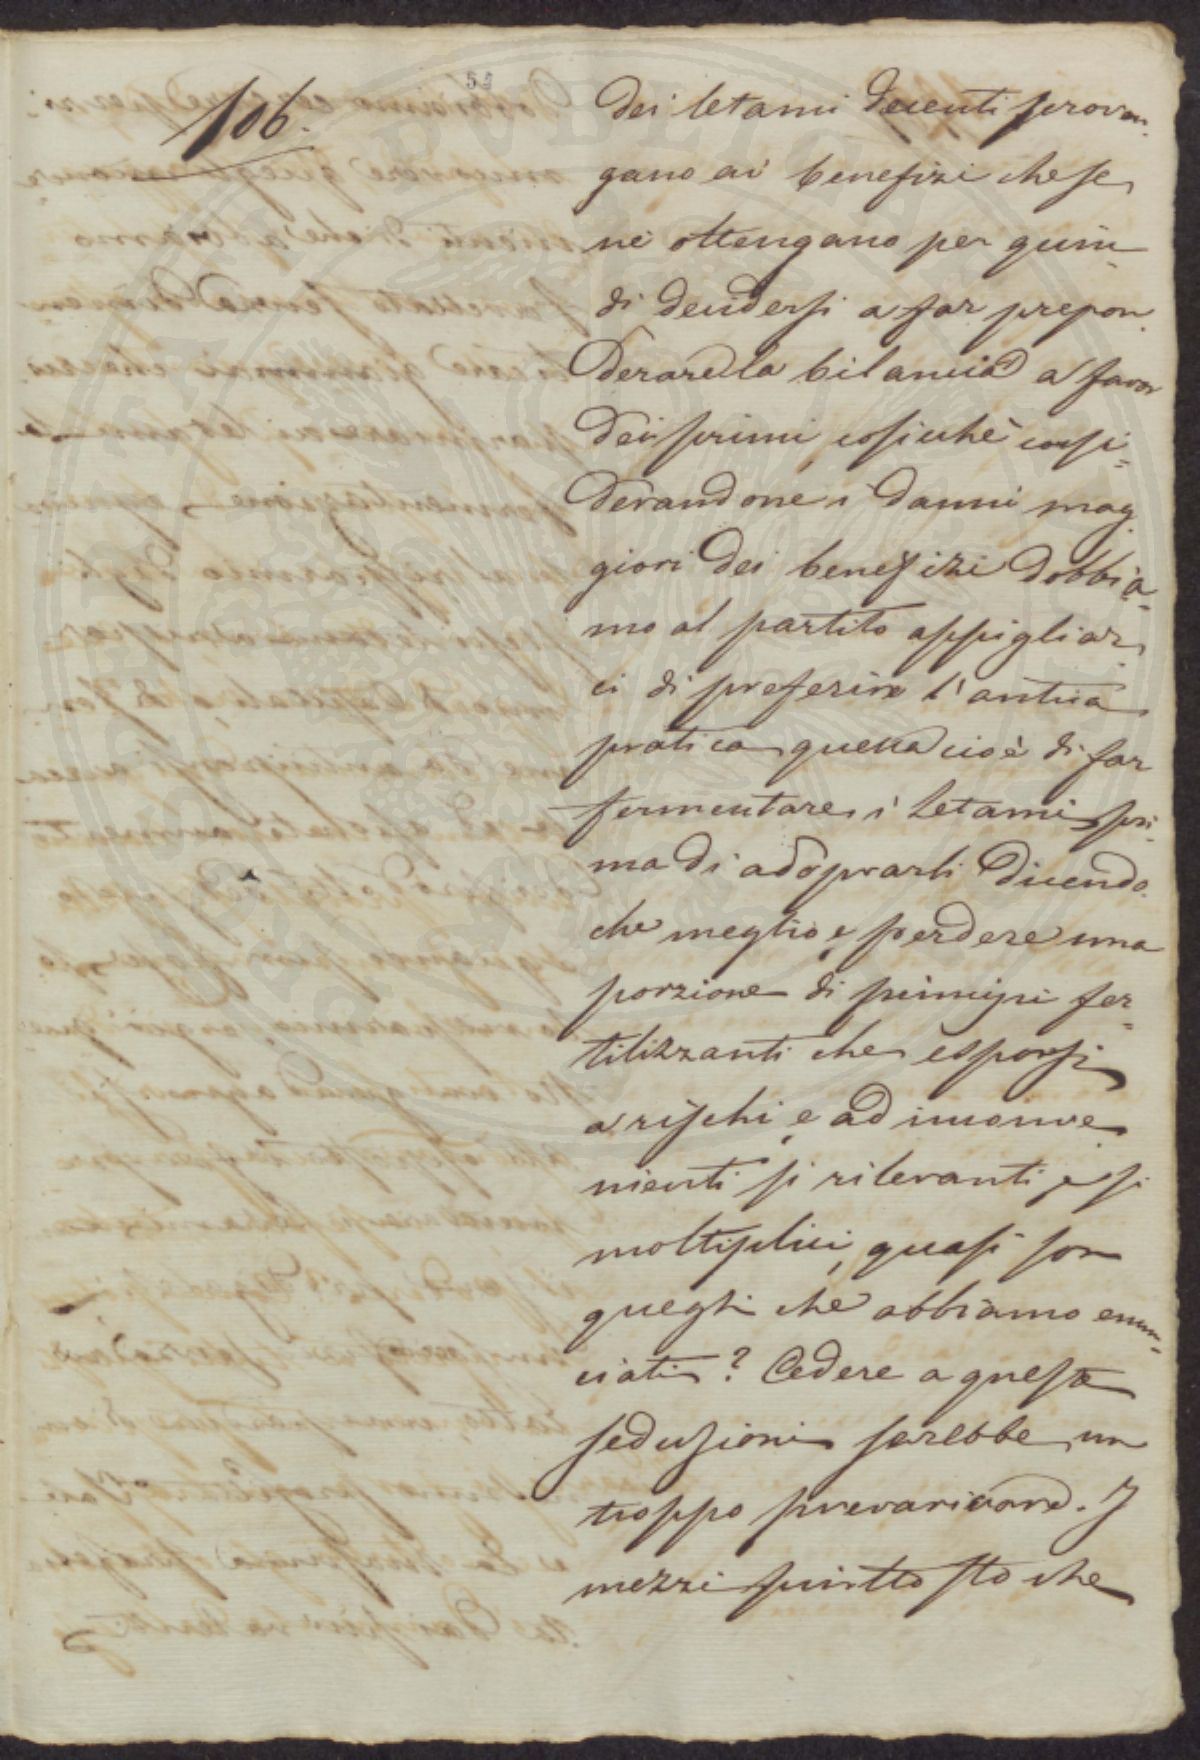 54
106.
dei letami recenti proven-
gano ai benefizi che se
ne ottengano per quin-
di decidersi a far prepon-
derare la bilancia a favor
dei primi, cosicchè consi-
derandone i danni mag-
giori dei benefizi dobbia-
mo al partito appigliar-
ci di preferire l'antica
pratica quella cioè di far
fermentare i letami pri-
ma di adoprarli dicendo
che meglio è perdere una
porzione di principi fer-
tilizzanti che esporsi
a rischi, e ad inconve-
nienti si rilevanti, e si
moltiplici, quasi son
quegli che abbiamo enun-
ciati? Cedere a questa
seduzioni sarebbe un
troppo prevaricare. I
mezzi piuttosto che